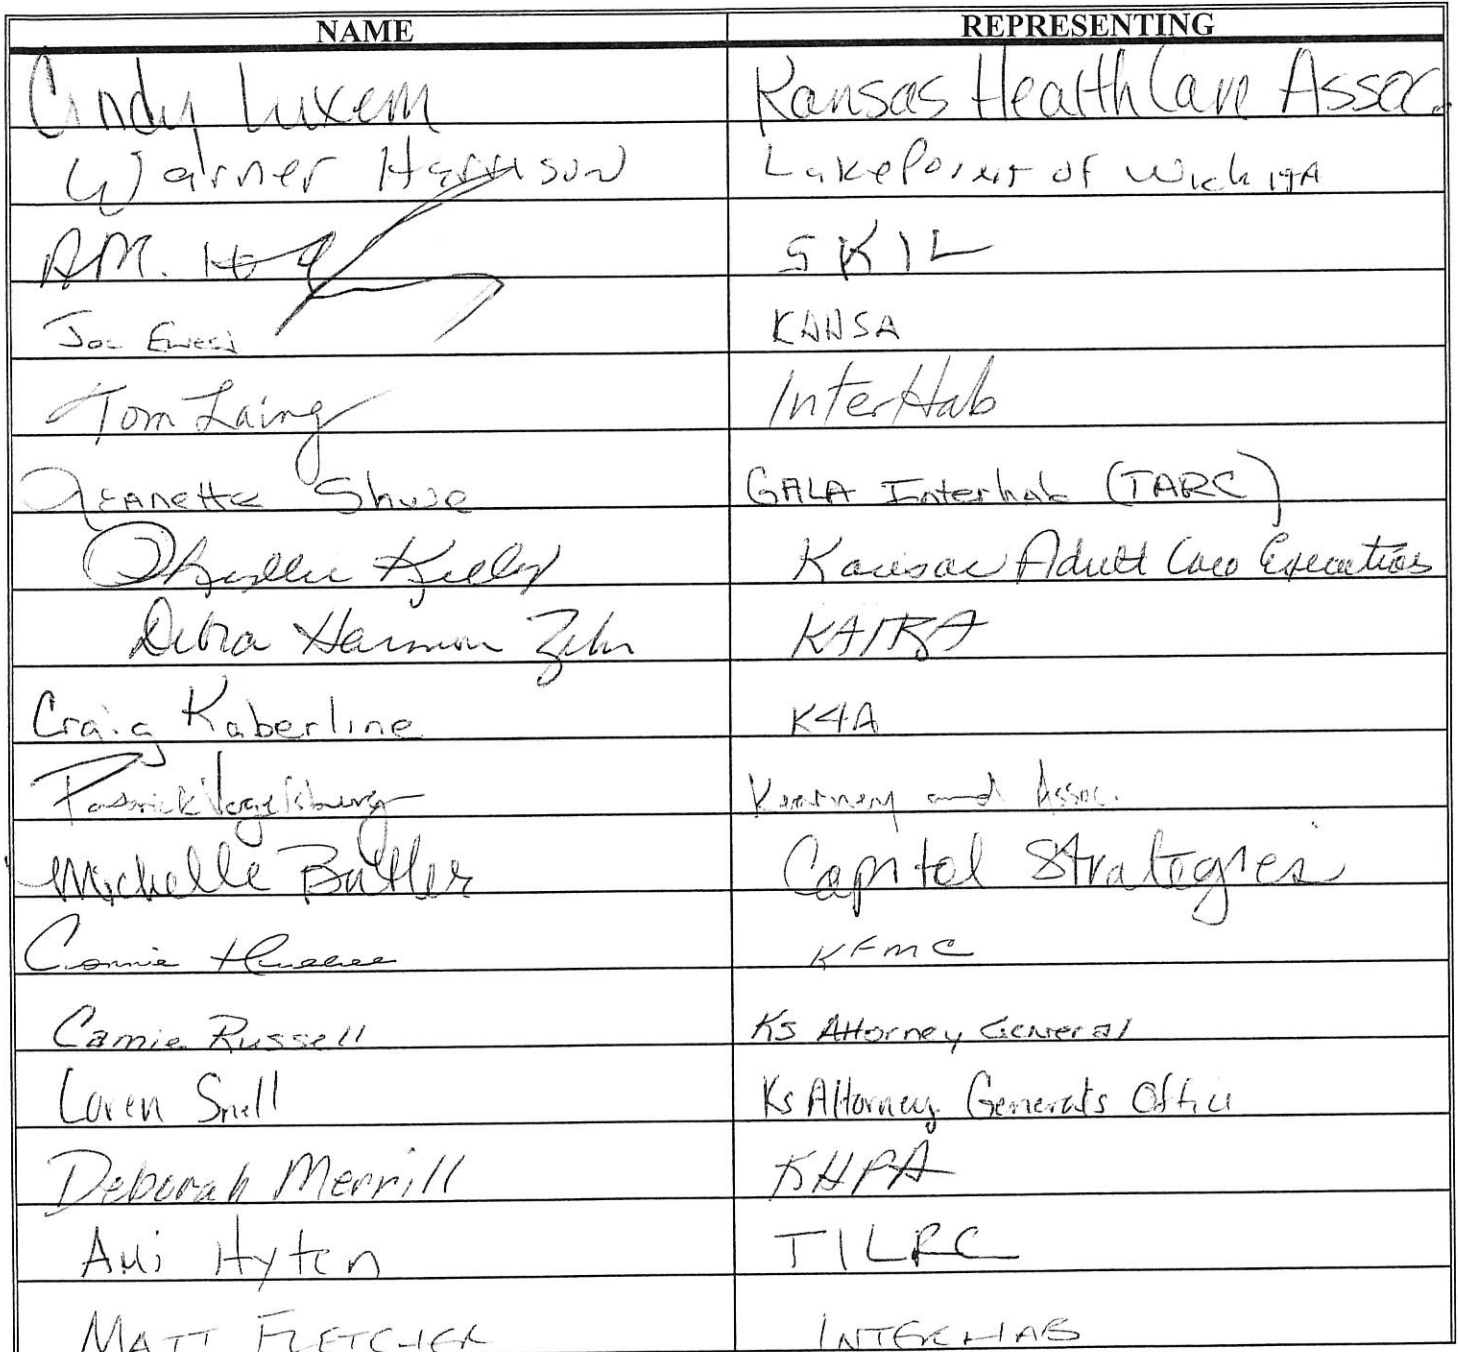 NAME REPRESENTING
Cindy Luxem Kansas Health Care Assoc.
Warner Harrison LakePoint of Wichita
A.M. SKIL
Joe Ewert KAHSA
Tom Laing InterHab
Jeanette Shuse GALA Interhab (TARC)
Phyllis Kelly Kansas Adult Care Executives
Debra Harmon Zehr KAHSA
Craig Kaberline K4A
Patrick Vogelsberg Kearney and Assoc.
Michelle Butler Capitol Strategies
Connie KFMC
Camie Russell Ks Attorney General
Loren Snell Ks Attorney Generals Office
Deborah Merrill KHPA
Ami Hyten TILRC
MATT FLETCHER INTERHAB